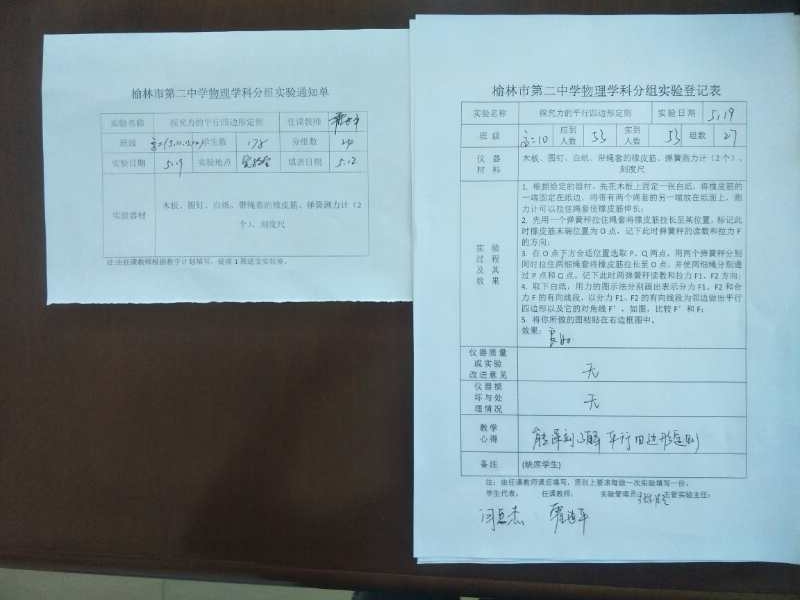 榆林市第二中学物理学科分组实验通知单
实验名称 探究力的平行四边形定则 任课教师
班级 学生数 178 分组数
实验日期 5.19 实验地点 实验室 填表日期 5.12
实验器材 木板、图钉、白纸、带绳套的橡皮筋、弹簧测力计（2
个）、刻度尺
注:由任课教师根据教学计划填写，提前1周送交实验室。
榆林市第二中学物理学科分组实验登记表
实验名称 探究力的平行四边形定则 实验日期 5.19
班级 应到人数 53 实到人数 53 组数 27
仪器材料 木板、图钉、白纸、带绳套的橡皮筋、弹簧测力计（2个）、
刻度尺
实验过程及其效果
1. 根据给定的器材，先在木板上固定一张白纸，将橡皮筋的
一端固定在纸边，将带有两个绳套的另一端放在纸面上，测
力计可以拉住绳套使橡皮筋伸长；
2. 先用一个弹簧秤拉住绳套将橡皮筋拉长至某位置，标记此
时橡皮筋末端位置为O点，记下此时弹簧秤的读数和拉力F
的方向；
3. 在O点下方合适位置选取P、Q两点，用两个弹簧秤分别
同时拉住两细绳套将橡皮筋拉长至O点，并使两细绳分别通
过P点和Q点，记下此时两弹簧秤读数和拉力F1、F2方向；
4. 取下白纸，用力的图示法分别画出表示分力F1、F2和合
力F的有向线段，以分力F1、F2的有向线段为邻边做出平行
四边形以及它的对角线F'，如图，比较F'和F；
5. 将你所做的图粘贴在右边框图中。
效果： 良好
仪器质量或实验改进意见 无
仪器损坏与处理情况 无
教学心得 平行四边形定则
备注 (缺席学生)
注：由任课教师课后填写，原则上要求每做一次实验填写一份。
学生代表： 任课教师： 实验管理员： 主管实验主任：